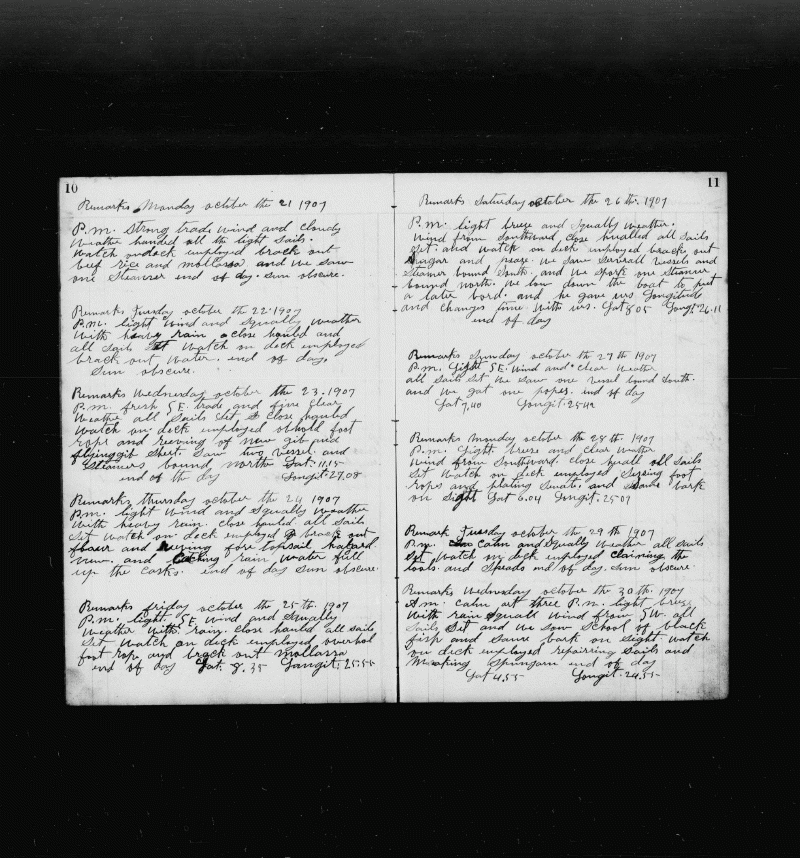 10
Remarks Monday october the 21 1907
P.m. Strong trade wind and cloudy
Weather handed all the light sails.
Watch ondeck employed brack out
beef rice and mollassa and we saw
one Steamer end of day. Sun obscure.
Remarks Tuesday october the 22 1907
P.m. light wind and Squally weather
With heavy rain close hauled and
all Sails Set Watch on deck employed
brack out Water. end of day.
Sun obscure.
Remarks Wednesday october the 23. 1907
P.m. fresh S.E. trade and fine clear
Weather all Sails Set, close hauled
Watch on deck employed foot
rope and reeving of new gib and
flyinggib Shet. Saw two vessel and
Steamers bound north Lat. 11.15
end of the day Longit. 27.08
Remarks Thursday october the 24 1907
P.m. light wind and Squally weather
With heavy rain. close hauled all Sails
Set Watch on deck employed brack out
flour and reeving fore topsail halard
new. and rain water full
up the casks. end of day Sun obscure.
Remarks friday october the 25 th. 1907
P.m. light. S.E. wind and Squally
Weather With rain. close hauled all sails
Set Watch on deck employed overhol
foot rope and brack out mollassa
end of day Lat. 8.35 Longit. 25.55
11
Remarks Saturday october the 26 th. 1907
P.m. light breeze and Squally weather.
Wind from Southward, close hualled all Sails
Set. and Watch on deck employed brack out
Sugar and pease. We saw Severall vessels and
Steamer bound South. and we spork one Steamer
bound north. We low down the boat to put
a later bord. and he gave urs Longitude
and changes time With urs. Lat 8.05 Longit 26.11
end of day
Remarks Sunday october the 27 th 1907
P.m. Light S.E. Wind and clear Weather
all sails Set We saw one vessel bound South.
and We got one popes. end of day
Lat 7,40 Longit.
Remarks monday october the 28 th. 1907
P.m. Light breeze and clear Watter
Wind from Southward. close huall all Sails
Set Watch on deck employed Seising foot
ropes and plating and Saurs bark
on Sight Lat 6.04 Longit. 25 07
Remark Tuesday october the 29 th 1907
P.m. Calm and Squally Weather all sails
Set Watch on deck employed claining the
tools. and Speads end of day. Sun obscure
Remarks Wednesday october the 30 th. 1907
A.m. calm at three P.m. light breeze
With rain squall Wind from S.W. all
Sails Set and We saw School of black
fish and Saurs bark on Sight Watch
on deck employed repairring Sails and
Making Spungarn end of day
Lat 4.55 Longit. 24.55